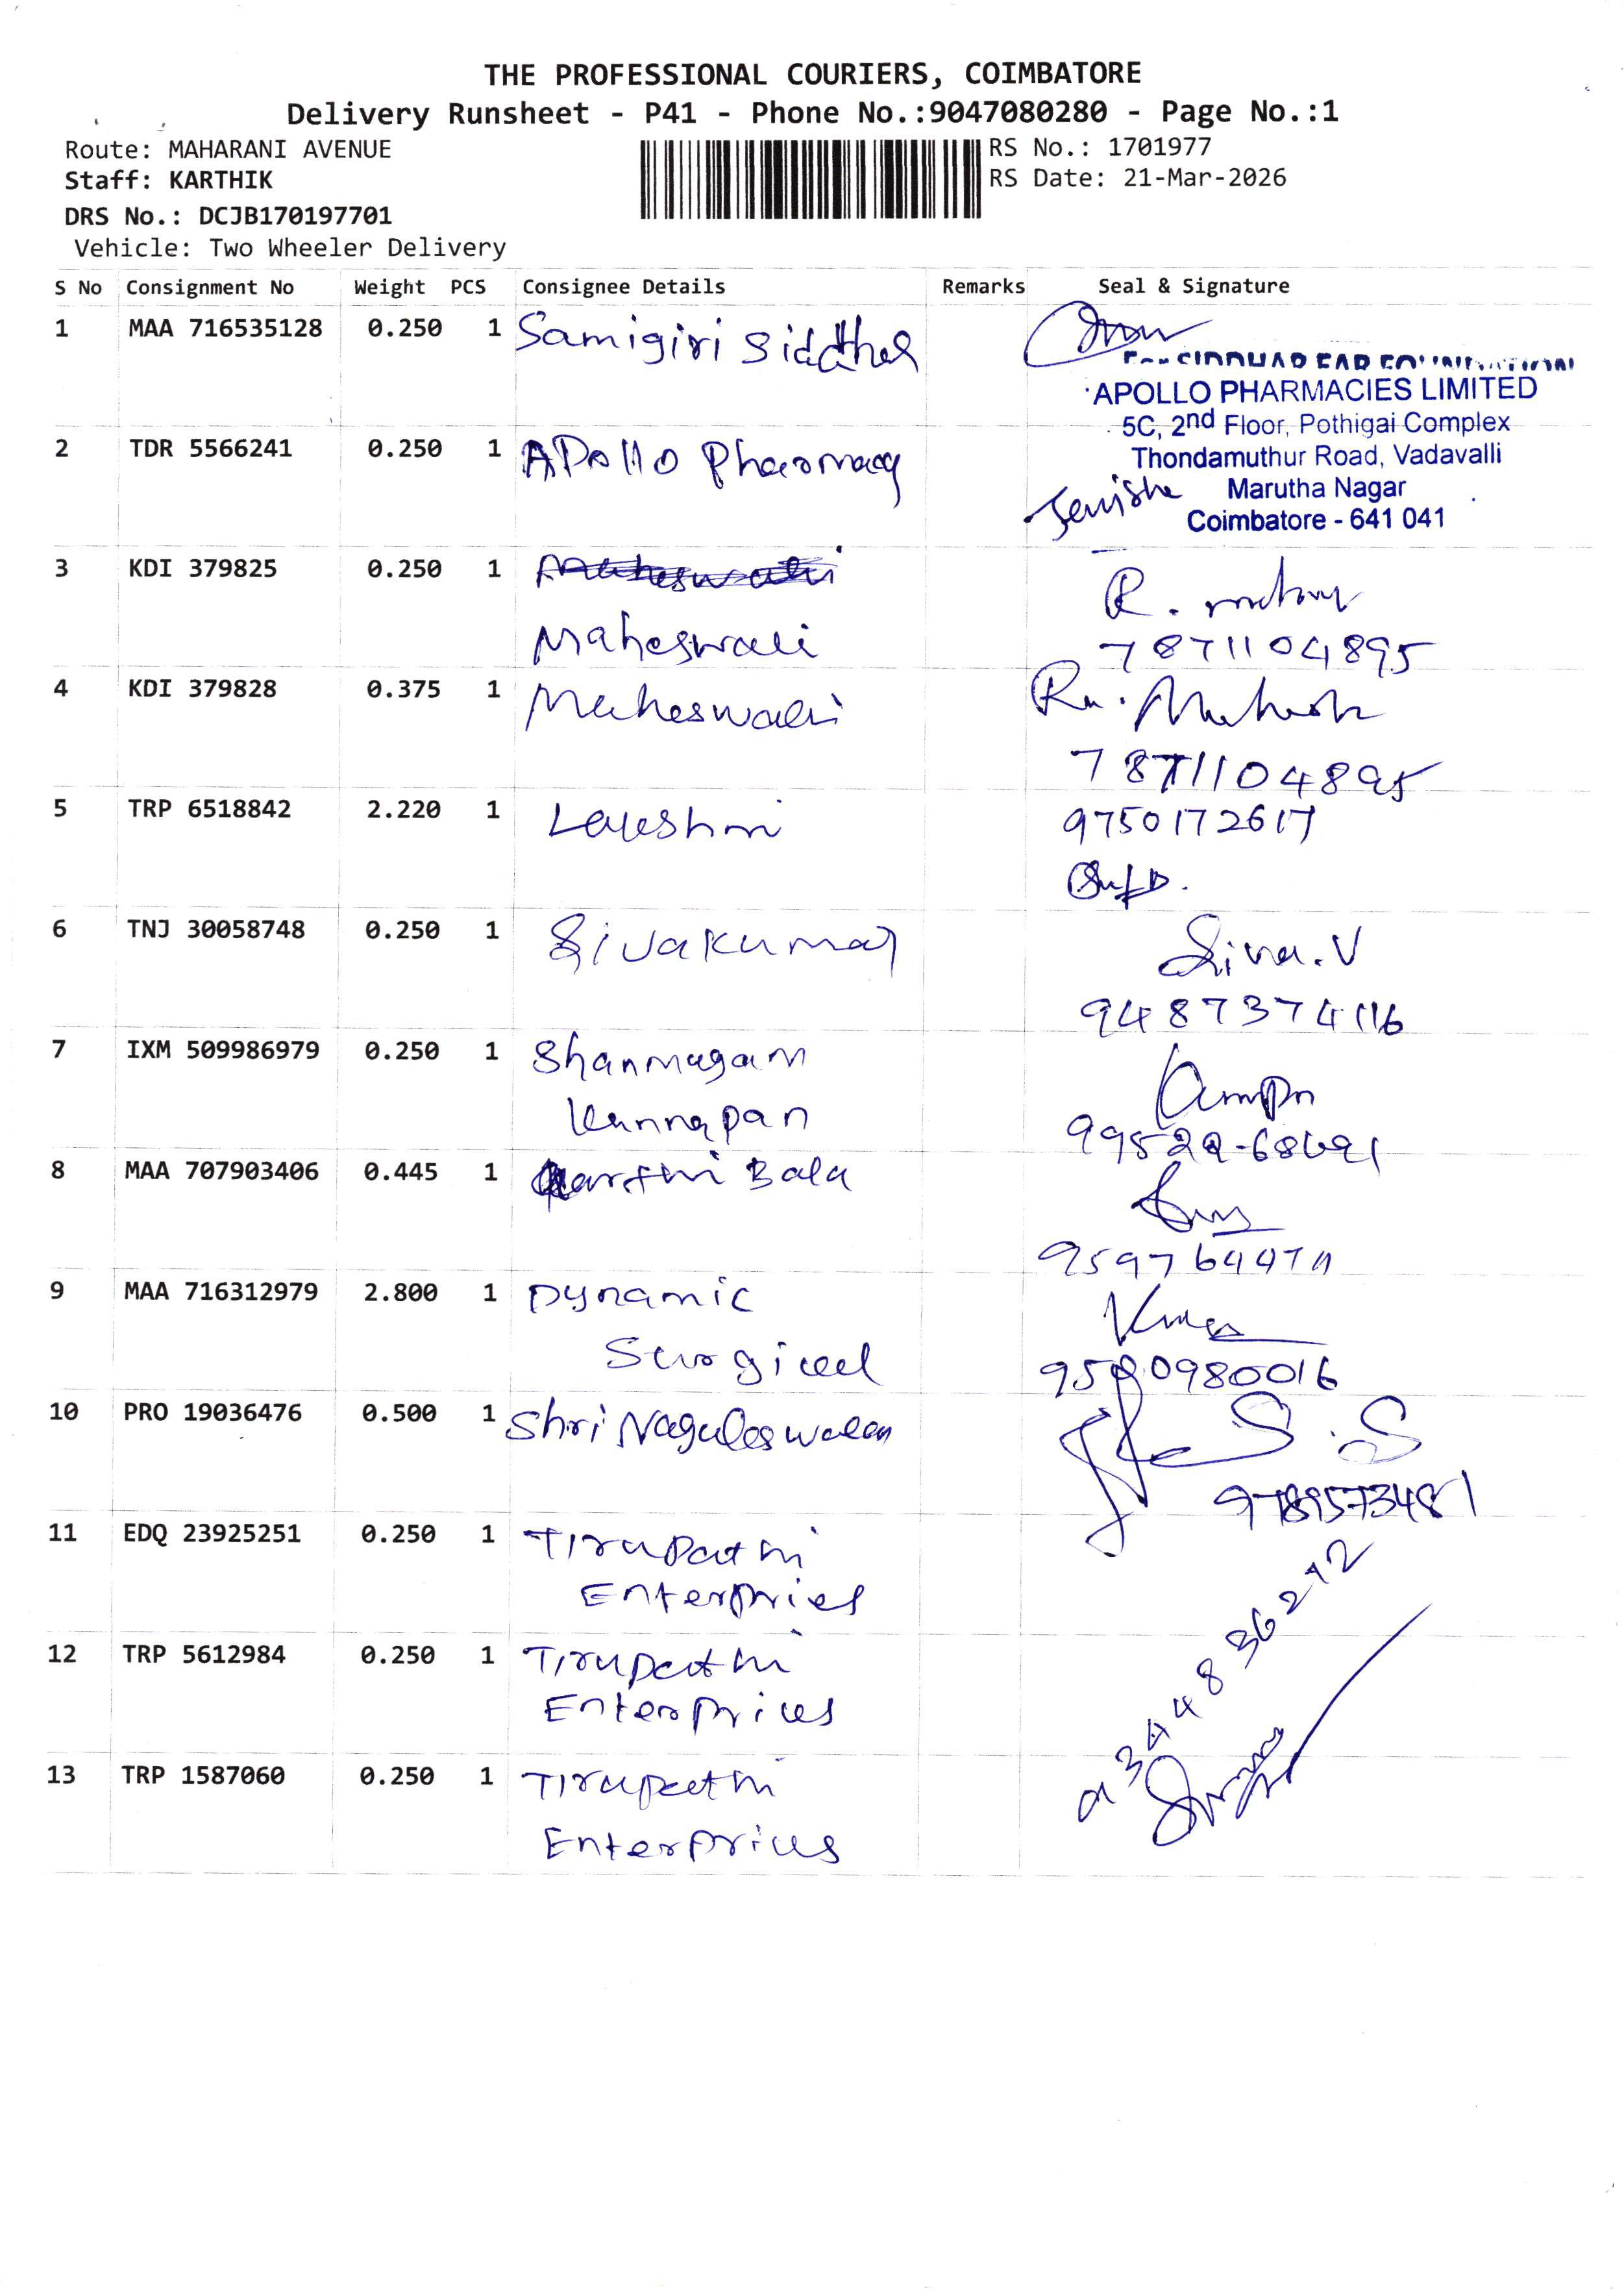 THE PROFESSIONAL COURIERS, COIMBATORE
Delivery Runsheet - P41 - Phone No.:9047080280 - Page No.:1
Route: MAHARANI AVENUE
RS No.: 1701977
Staff: KARTHIK
RS Date: 21-Mar-2026
DRS No.: DCJB170197701
Vehicle: Two Wheeler Delivery
S No Consignment No Weight PCS Consignee Details Remarks Seal & Signature
1 MAA 716535128 0.250 1 Samigiri
APOLLO PHARMACIES LIMITED
5C, 2nd Floor, Pothigai Complex
2 TDR 5566241 0.250 1 APollo Pharmacy
Thondamuthur Road, Vadavalli
Jenisha Marutha Nagar
Coimbatore - 641 041
3 KDI 379825 0.250 1
Maheswari
7871104895
4 KDI 379828 0.375 1 Maheswari
7871104895
5 TRP 6518842 2.220 1 Lakshmi 9750172617
6 TNJ 30058748 0.250 1 Sivakumar Siva.V
9487374116
7 IXM 509986979 0.250 1 Shanmugam
Kannapan
8 MAA 707903406 0.445 1 Bala
9 MAA 716312979 2.800 1 Dynamic
Surgical
10 PRO 19036476 0.500 1 Shri Naguleswaran S.S
9789573481
11 EDQ 23925251 0.250 1 Tirupathi
Enterpries
12 TRP 5612984 0.250 1 Tirupathi
Enterprices
13 TRP 1587060 0.250 1 Tirupathi
Enterprices